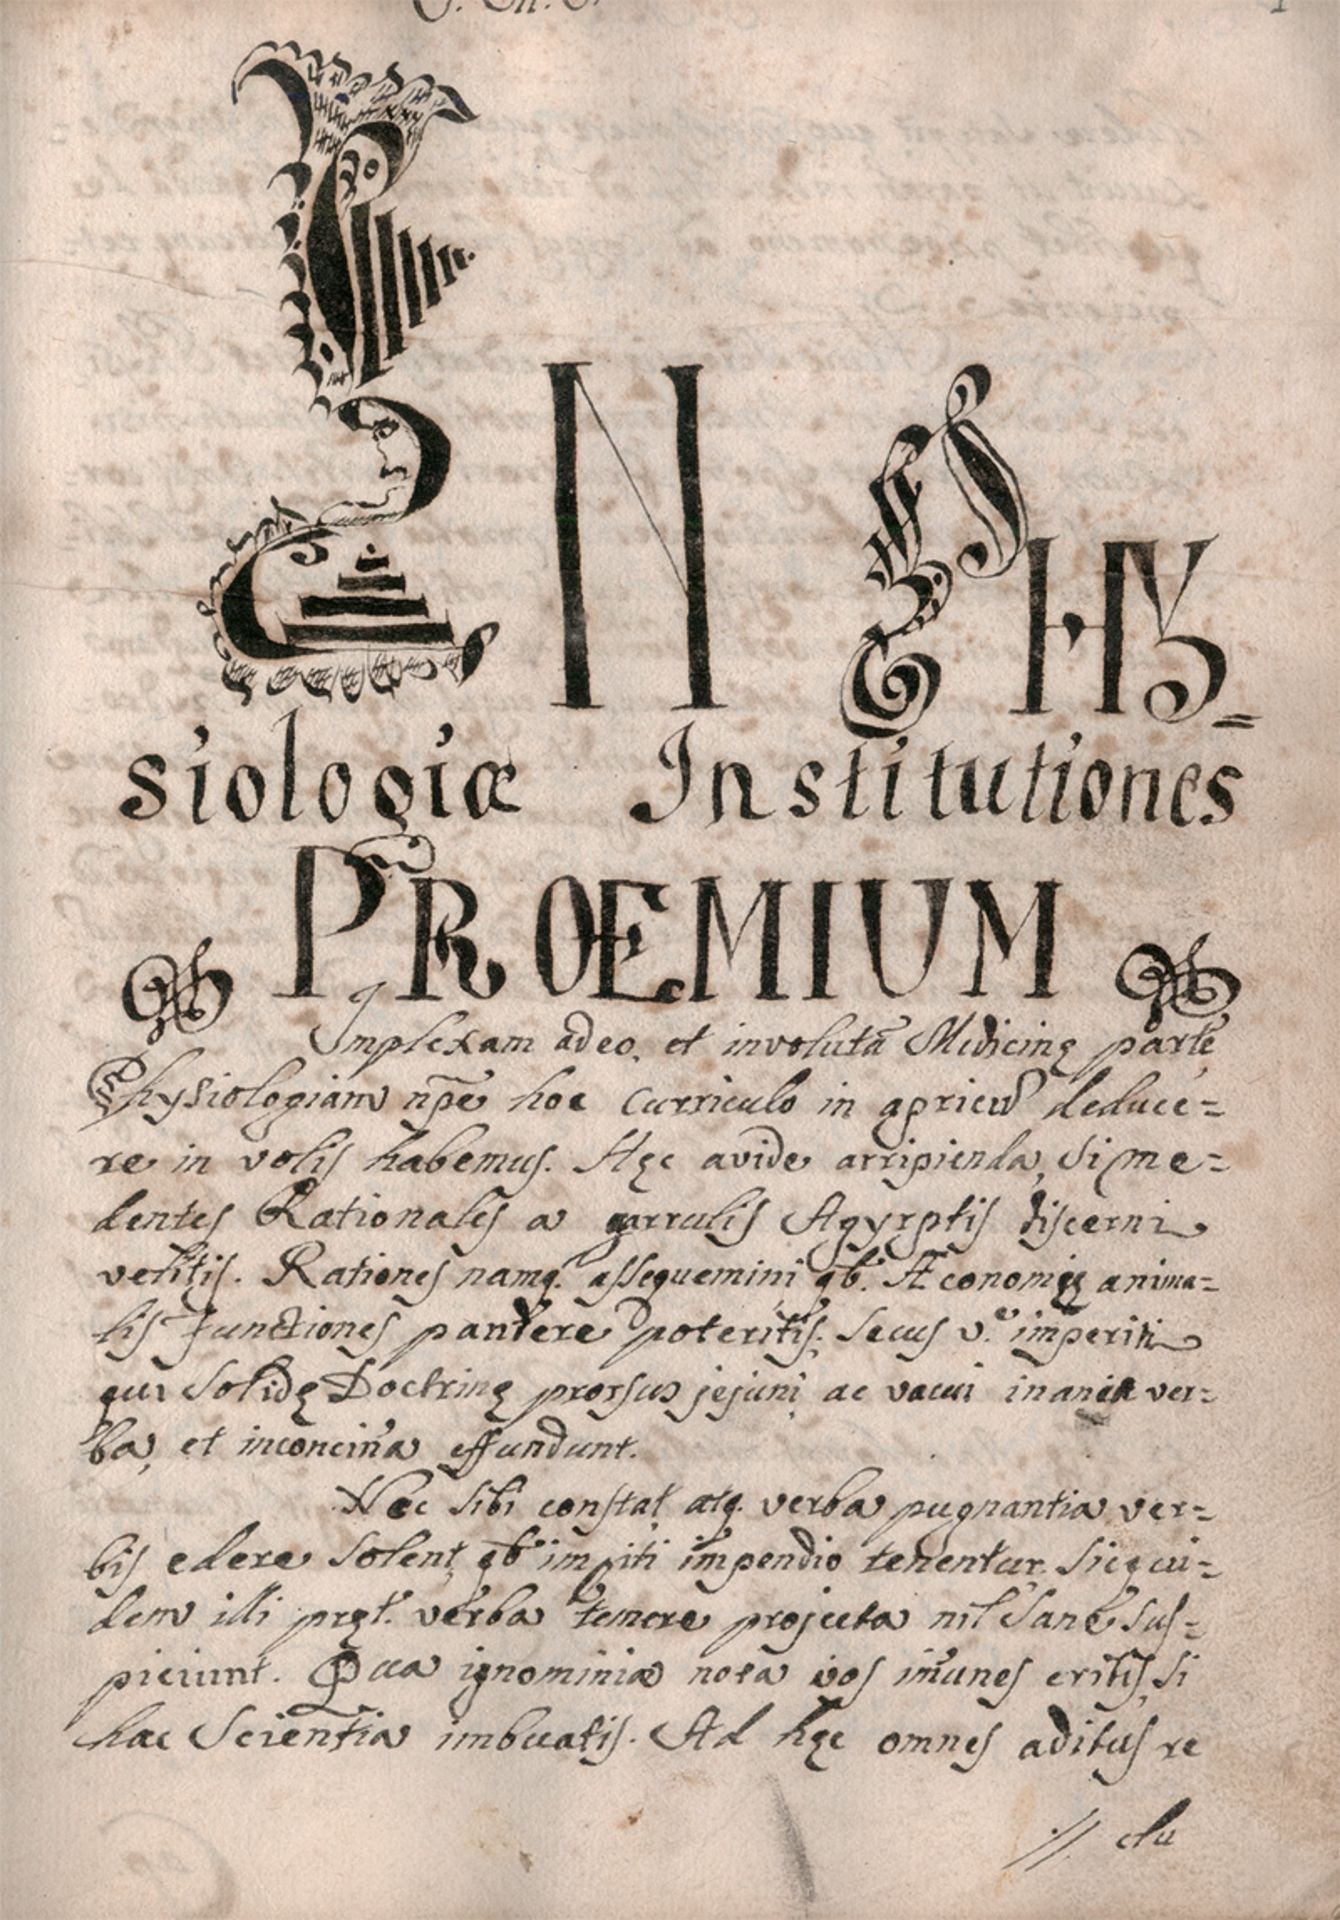 IN PHY=
siologiæ Institutiones
PRŒMIUM
Implexam adeo, et involutã Medicinę partẽ,
Physiologiam np̃e hoc Curriculo in apricũ deduce=
re in votis habemus. Hęc avide arripienda, si me=
dentes Rationales a garrulis Agyrptis discerni
velitis. Rationes namq. assequemini, qb. Æconomię anima=
lis functiones pandere poteritis; secus v.º imperiti
qui solidę Doctrinę prorsus jejuni, ac vacui inania ver=
ba, et inconcin̄a effundunt.
Nec sibi constat, atq. verba pugnantia ver=
bis edere solent, qb. impendio tenentur. Sicq cui=
dem illi pręt. verba temere projecta nil sane sus=
piciunt. Qua ignominiæ nota vos im̄unes eritis, si
hac Scientia imbuatis. Ad hęc omnes aditus re
// clu